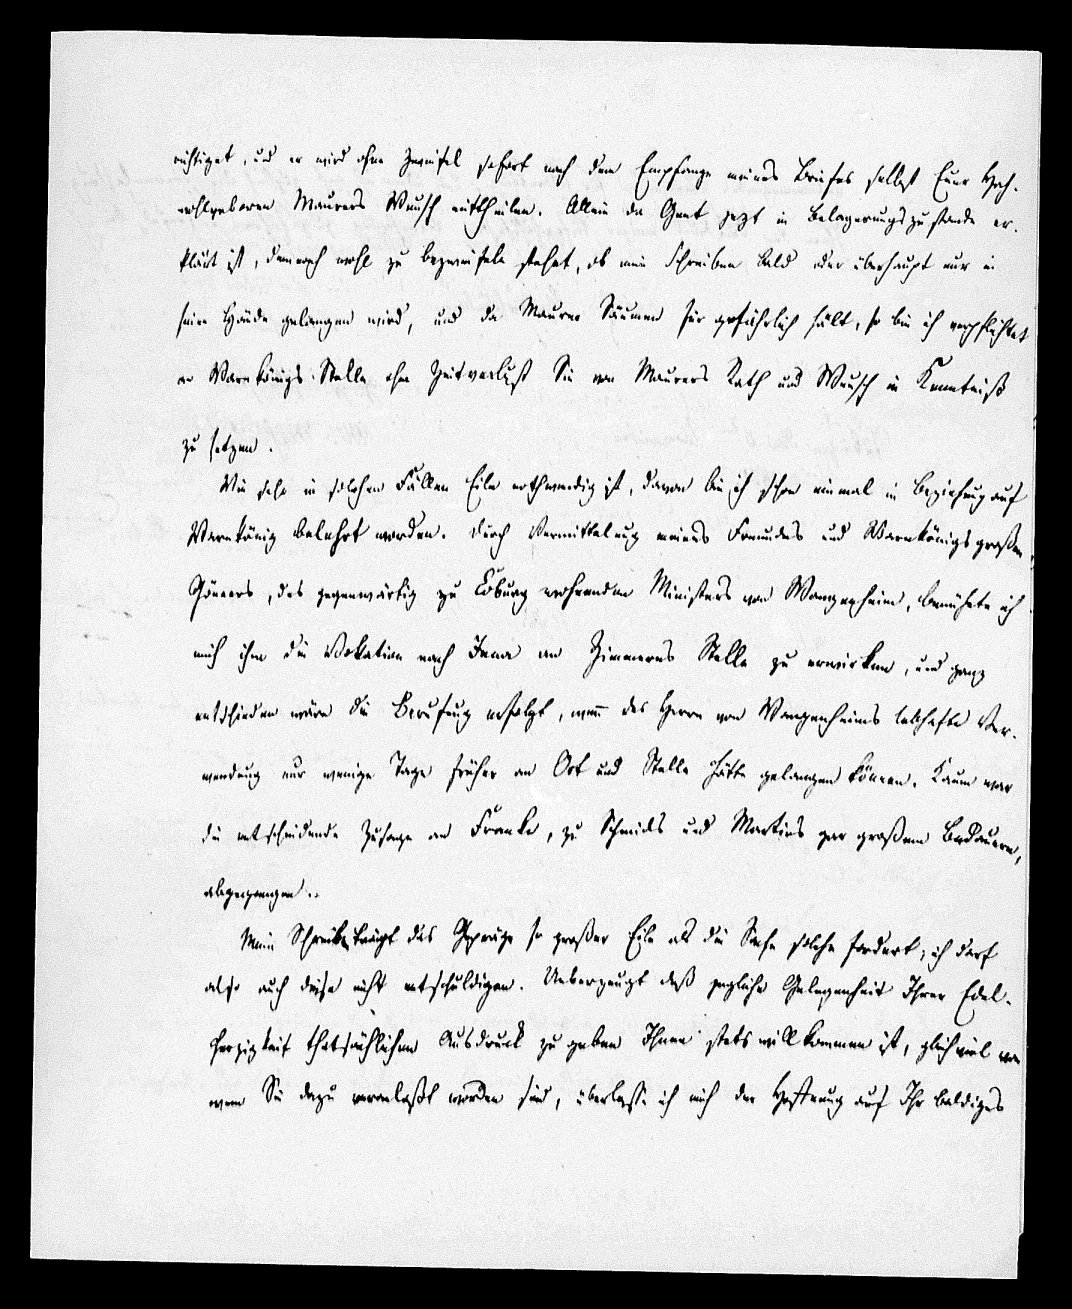 richtiget, und er wird ohne Zweifel sofort nach dem Empfange meines Briefes selbst Euer Hoch-
wohlgeboren Maurers Wunsch mittheilen. Allein da Gent jezt in Belagerungszustande er-
klärt ist, demnach wohl zu bezweifeln stehet, ob mein Schreiben bald oder überhaupt nur in
seine Hände gelangen wird, und da Maurer Säumen für gefährlich hält, so bin ich verpflichtet
an Warnkönigs Stelle ohne Zeitverlust Sie von Maurers Rath und Wunsch in Kenntniß
zu setzen.
Wie sehr in solchen Fällen Eile nothwendig ist, davon bin ich schon einmal in Beziehung auf
Warnkönig belehrt worden. Durch Vermittelung meines Freundes und Warnkönigs großen
Gönners, des gegenwärtig zu Coburg wohnenden Ministers von Wangenheim, bemühete ich
mich ihm die Vokation nach Jena an Zimmerns Stelle zu erwirken, und ganz
entschieden wäre die Berufung erfolgt, wenn des Herrn von Wangenheims lebhafte Ver-
wendung nur wenige Tage früher an Ort und Stelle hätte gelangen können. Kaum war
die entscheidende Zusage an Franke, zu Schmids und Martins gar großem Bedauern,
abgegangen.
Mein Schreiben trägt das Gepräge so großer Eile als die Sache solche fordert; ich darf
also auch diese nicht entschuldigen. Ueberzeugt daß jegliche Gelegenheit Ihrer Edel-
herzigkeit thatsächlichen Ausdruck zu geben Ihnen stets willkommen ist, gleichviel von
wem Sie dazu veranlaßt worden sind, überlasse ich mich der Hoffnung auf Ihr baldiges